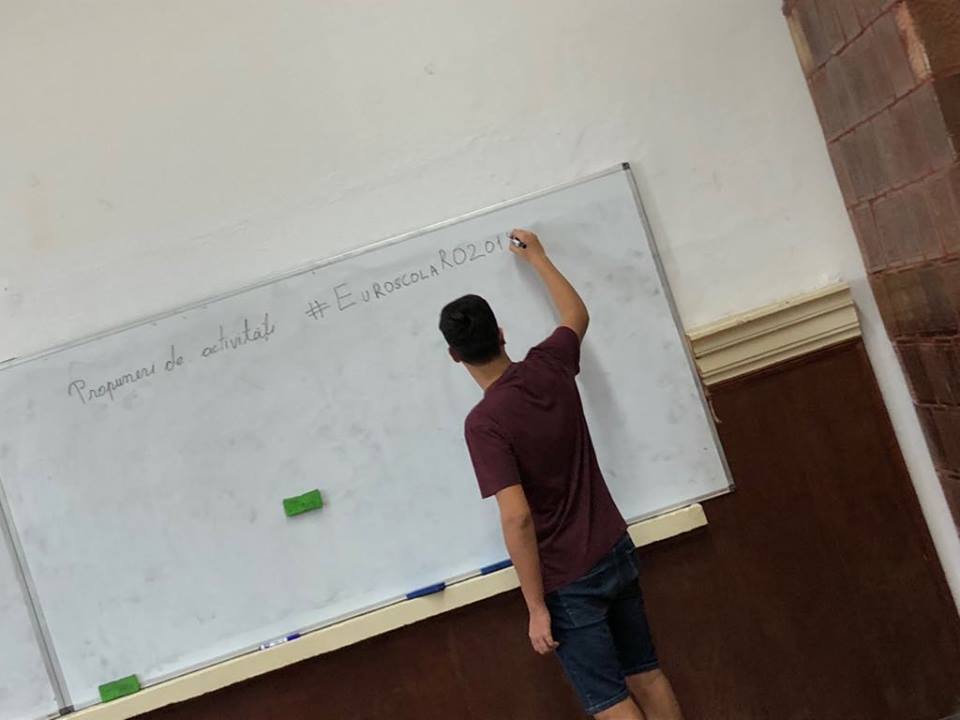 Propuneri de activități #EUROSCOLARO201